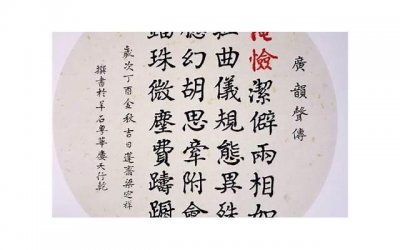 廣韻聲傳
憸潔僻兩相如
曲儀規態異殊
幻胡思牽附會
珠微塵費躊躕
歲次丁酉金秋吉日蓬齋梁定祥
撰書於羊石粵華樓天行乾